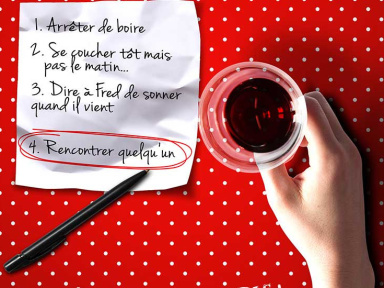 1. Arrêter de boire
2. Se coucher tôt mais
pas le matin...
3. Dire à Fred de sonner
quand il vient
4. Rencontrer quelqu'un